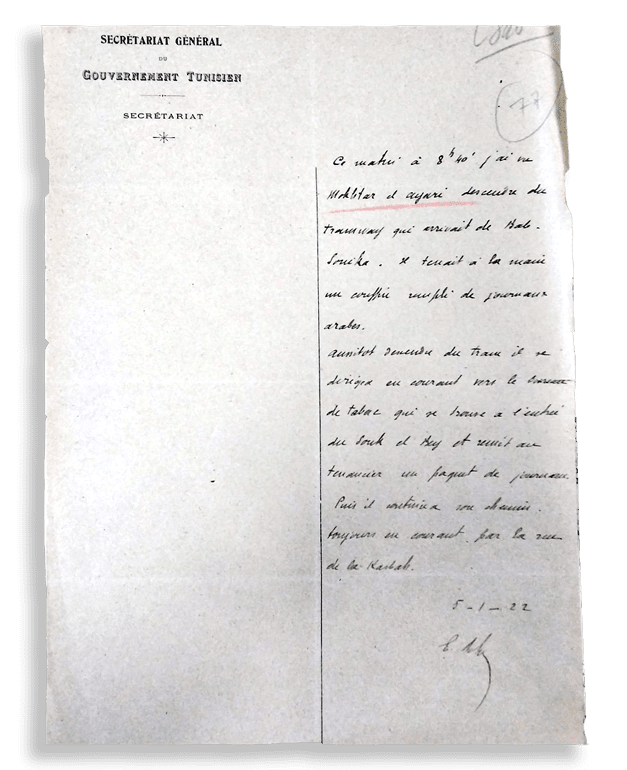 SECRÉTARIAT GÉNÉRAL
DU
GOUVERNEMENT TUNISIEN
SECRÉTARIAT
77
Ce matin à 8h 40' j'ai vu
Mokhtar el ayari descendre du
tramway qui arrivait de Bab-
Souika. Il tenait à la main
un couffin rempli de journaux
arabes.
aussitot descendu du tram il se
dirigea en courant vers le bureau
de tabac qui se trouve à l'entrée
du Souk el Bey et remit au
tenancier un paquet de journaux
Puis il continua son chemin,
toujours en courant, par la rue
de la Kasbah.
5-1-22